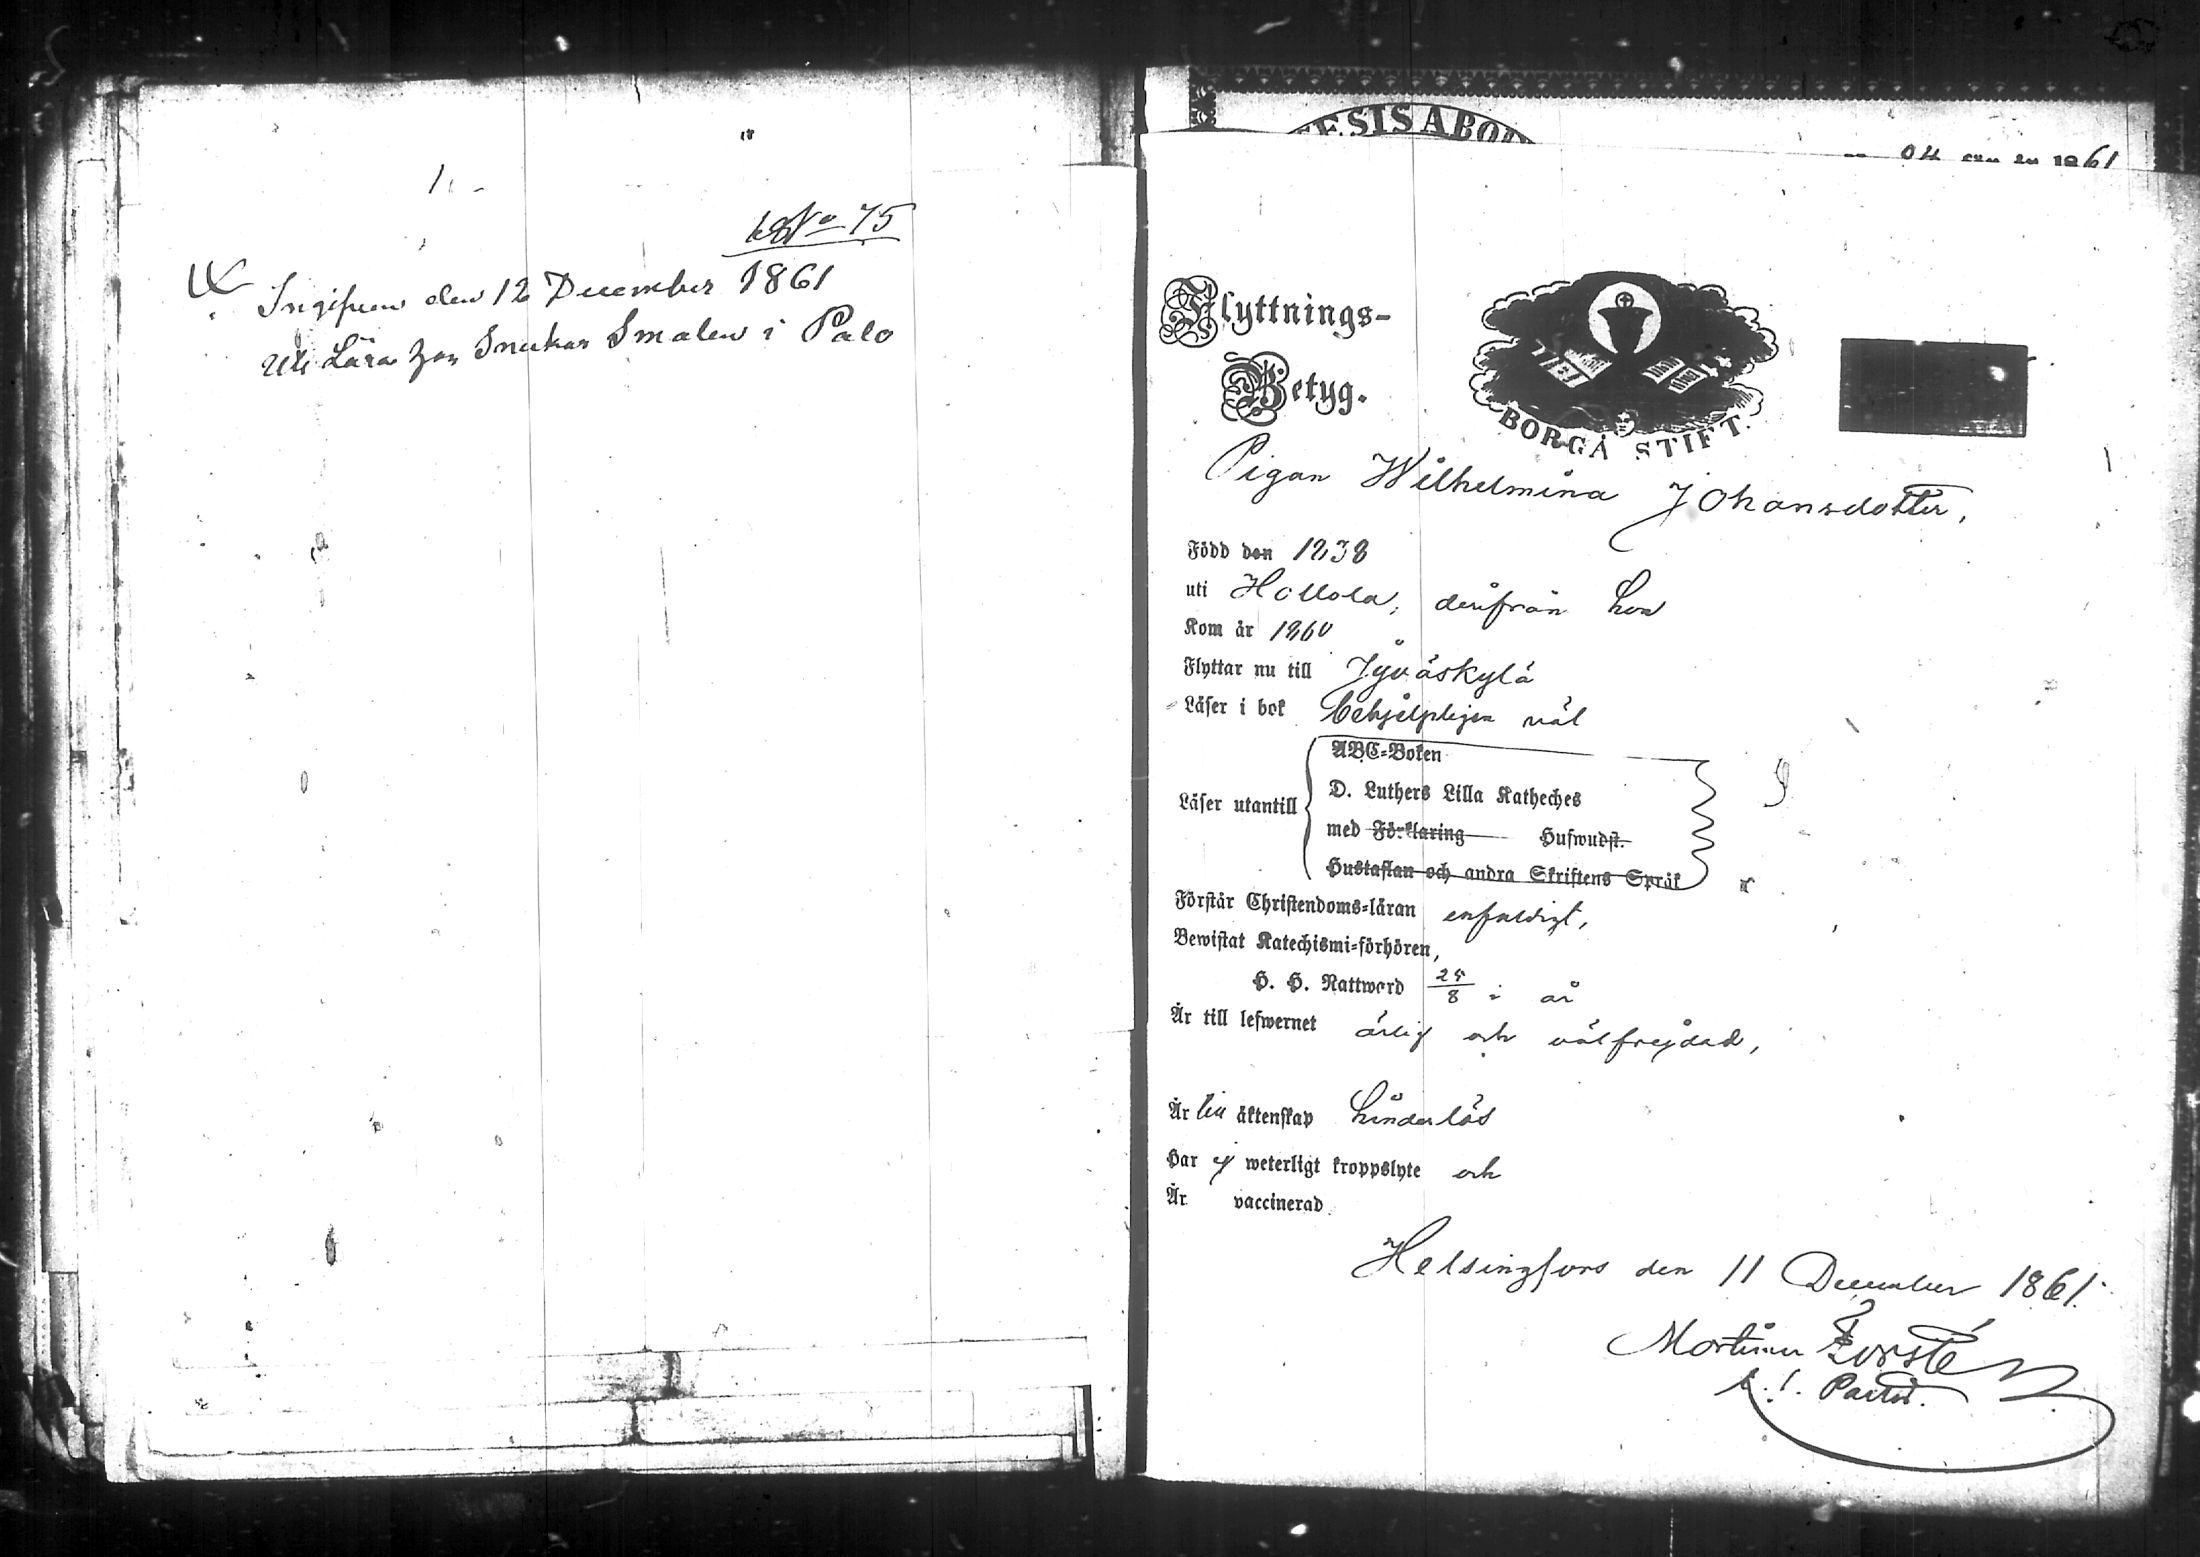 No 75
Ingifven den 12 December 1861
Lära hos Snickar Smalen i Palo
ESIS ABO
1861
Flyttnings-
Betyg.
BORGÅ STIFT.
Pigan Wilhelmina Johansdotter,
Född den 1838
uti Hollola, derifrån hon
Kom år 1860
Flyttar nu till Jyväskylä
Läser i bok behjelpligen väl
ABC-Boken
D. Luthers Lilla Katheches
Läser utantill
med Förklaring Hufwudst.
Hustaflan och andra Skriftens Språk
Förstår Christendoms-läran enfaldigt,
Bewistat Katechismi-förhören,
H. H. Nattward 25/8 i år
Är till lefwernet ärlig och välfrejdad,
Är till äktenskap hinderlös
Har ej weterligt kroppslyte och
Är vaccinerad
Helsingfors den 11 December 1861.
Mortimer Forstén
Pastor.